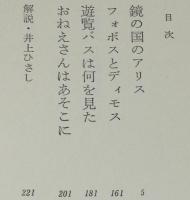 目次
鏡の国のアリス 5
フォボスとディモス 161
遊覧バスは何を見た 181
おねえさんはあそこに 201
解説・井上ひさし 221